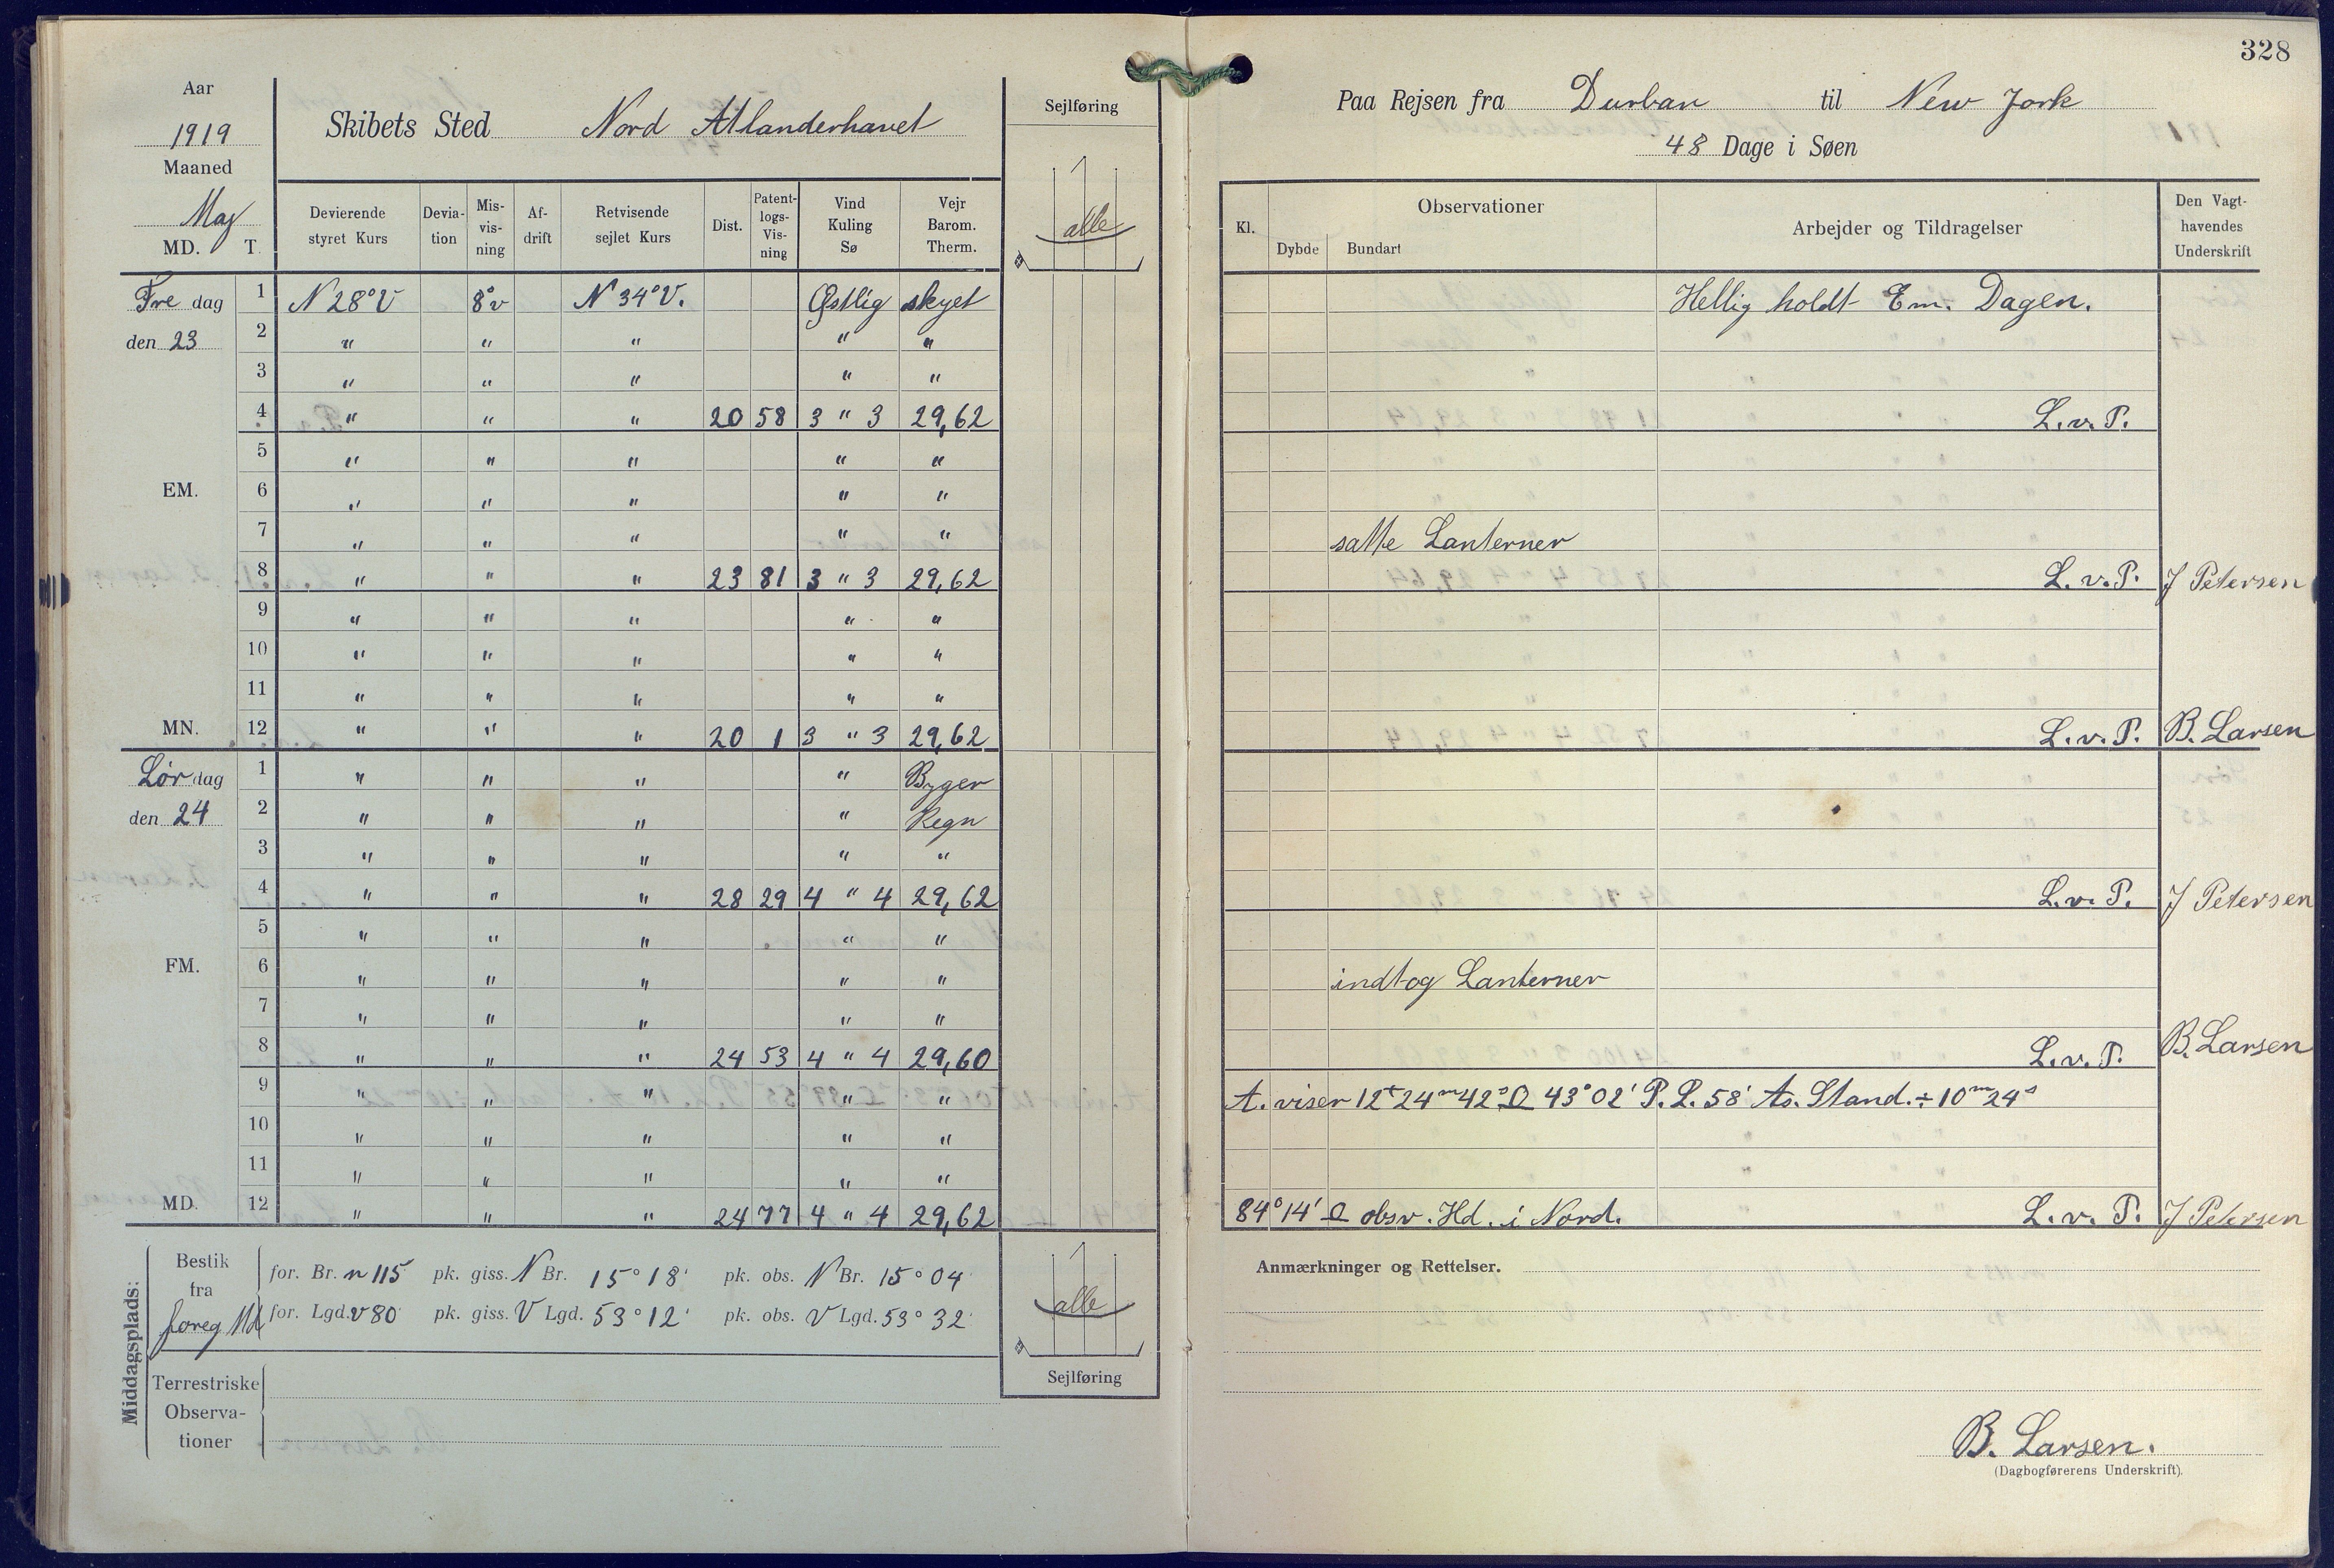 328
Aar
1919
Maaned
Maj
MD. T.
Skibets Sted Nord Atlanderhavet
Sejlføring
alle
Paa Rejsen fra Durban til New Jork
48 Dage i Søen
Devierende styret Kurs
Devia-tion
Mis-vis-ning
Af-drift
Retvisende sejlet Kurs
Dist.
Patent-logs-Vis-ning
Vind Kuling Sø
Vejr Barom. Therm.
Kl.
Observationer
Dybde Bundart
Arbejder og Tildragelser
Den Vagt-havendes Underskrift
Fre dag 1 N 28° V 8° v N 34° V. Østlig skyet Hellig holdt Em. Dagen.
den 23 2 " " " " "
3 " " " " "
4 " " " 20 58 3 " 3 29,62 L.v.P.
5 " " " " "
EM. 6 " " " " "
7 " " " " " satte Lanterner
8 " " " 23 81 3 " 3 29,62 L.v.P. J Petersen
9 " " " " "
10 " " " " "
11 " " " " "
MN. 12 " " " 20 1 3 " 3 29,62 L.v.P. B. Larsen
Lør dag 1 " " " " Byger
den 24 2 " " " " Regn
3 " " " " "
4 " " " 28 29 4 " 4 29,62 L.v.P. J Petersen
5 " " " " "
FM. 6 " " " " " indtog Lanterner
7 " " " " "
8 " " " 24 53 4 " 4 29,60 L.v.P. B. Larsen
9 " " " " " A. viser 12t 24m 42s ☉ 43° 02' P.L. 58' As. Stand. ÷ 10m 24s
10 " " " " "
11 " " " " "
MD. 12 " " " 24 77 4 " 4 29,62 84° 14' ☉ obsv. Hd. i Nord. L.v.P. J Petersen
Middagsplads:
Bestik fra foreg Md
for. Br. n 115 pk. giss. N Br. 15° 18' pk. obs. N Br. 15° 04'
for. Lgd. v 80' pk. giss. V Lgd. 53° 12' pk. obs. V Lgd. 53° 32'
Terrestriske
Observa-
tioner
alle
Sejlføring
Anmærkninger og Rettelser.
B. Larsen.
(Dagbogførerens Underskrift).